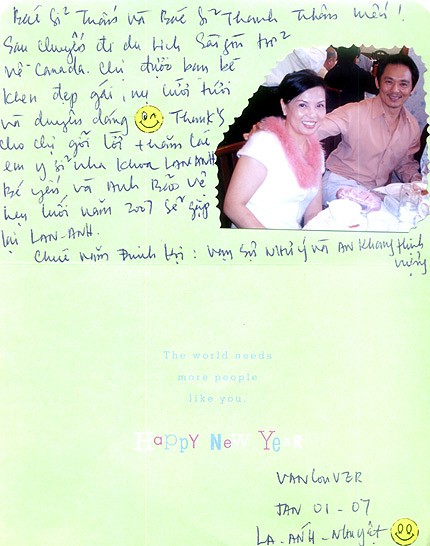 Bác Sĩ Tuấn và Bác Sĩ Thanh thân mến!
Sau chuyến đi du lịch Sài gòn trở
về Canada. Chị được bạn bè
khen đẹp gái, nụ cười tươi
và duyên dáng Thank's
cho chị gởi lời thăm các
em y sĩ nha khoa LAN-ANH
Bé yến và Anh Bảo về
hẹn cuối năm 2007 sẽ gặp
lại LAN-ANH.
Chúc năm Đinh Hợi: vạn sự NHƯ Ý và AN Khang thịnh
vượng
The world needs
more people
like you.
Happy New Year
VANCOUVER
JAN 01-07
LA-ÁNH-Nguyệt